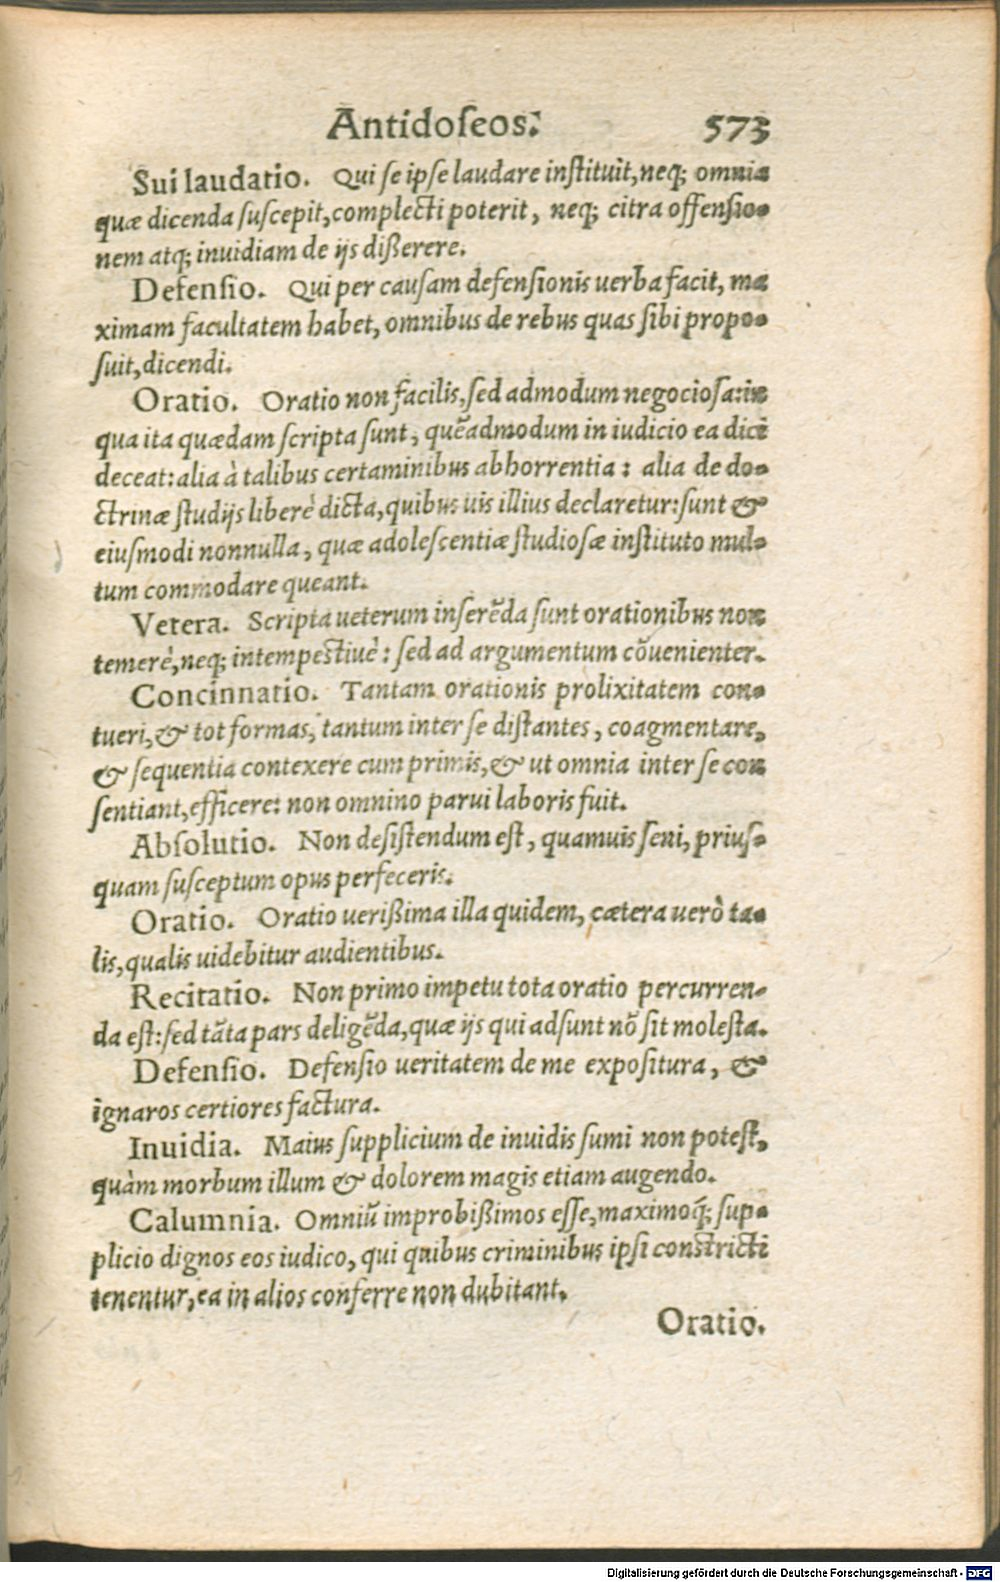 Antidoſeos. 573
Sui laudatio. Qui ſe ipſe laudare inſtituit, neq; omnia
quæ dicenda ſuſcepit, complecti poterit, neq; citra offenſio-
nem atq; inuidiam de ijs diſſerere.
Defenſio. Qui per cauſam defenſionis uerba facit, ma
ximam facultatem habet, omnibus de rebus quas ſibi propo-
ſuit, dicendi.
Oratio. Oratio non facilis, ſed admodum negocioſa: in
qua ita quædam ſcripta ſunt, quẽadmodum in iudicio ea dici
deceat: alia à talibus certaminibus abhorrentia: alia de do-
ctrinæ ſtudijs liberè dicta, quibus uis illius declaretur: ſunt &
eiuſmodi nonnulla, quæ adoleſcentiæ ſtudioſæ inſtituto mul-
tum commodare queant.
Vetera. Scripta ueterum inſerẽda ſunt orationibus non
temerè, neq; intempeſtiuè: ſed ad argumentum cõuenienter.
Concinnatio. Tantam orationis prolixitatem con-
tueri, & tot formas, tantum inter ſe diſtantes, coagmentare,
& ſequentia contexere cum primis, & ut omnia inter ſe con
ſentiant, efficere: non omnino parui laboris fuit.
Abſolutio. Non deſiſtendum eſt, quamuis ſeni, priuſ-
quam ſuſceptum opus perfeceris.
Oratio. Oratio ueriſſima illa quidem, cætera uerò ta-
lis, qualis uidebitur audientibus.
Recitatio. Non primo impetu tota oratio percurren-
da eſt: ſed tãta pars deligẽda, quæ ijs qui adſunt nõ ſit moleſta.
Defenſio. Defenſio ueritatem de me expoſitura, &
ignaros certiores factura.
Inuidia. Maius ſupplicium de inuidis ſumi non poteſt,
quàm morbum illum & dolorem magis etiam augendo.
Calumnia. Omniũ improbiſſimos eſſe, maximoq́; ſup-
plicio dignos eos iudico, qui quibus criminibus ipſi conſtricti
tenentur, ea in alios conferre non dubitant.
Oratio.
Digitalisierung gefördert durch die Deutsche Forschungsgemeinschaft - DFG